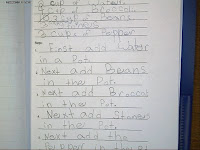 cup of water
of Broccoli
of Beans
Stones
3 cups of Pepper
First add Water
in a Pot.
Next add Beans
in the Pot.
Next add Broccoli
in the Pot.
Next add Stones
in the Pot.
Next add the
Pepper in the